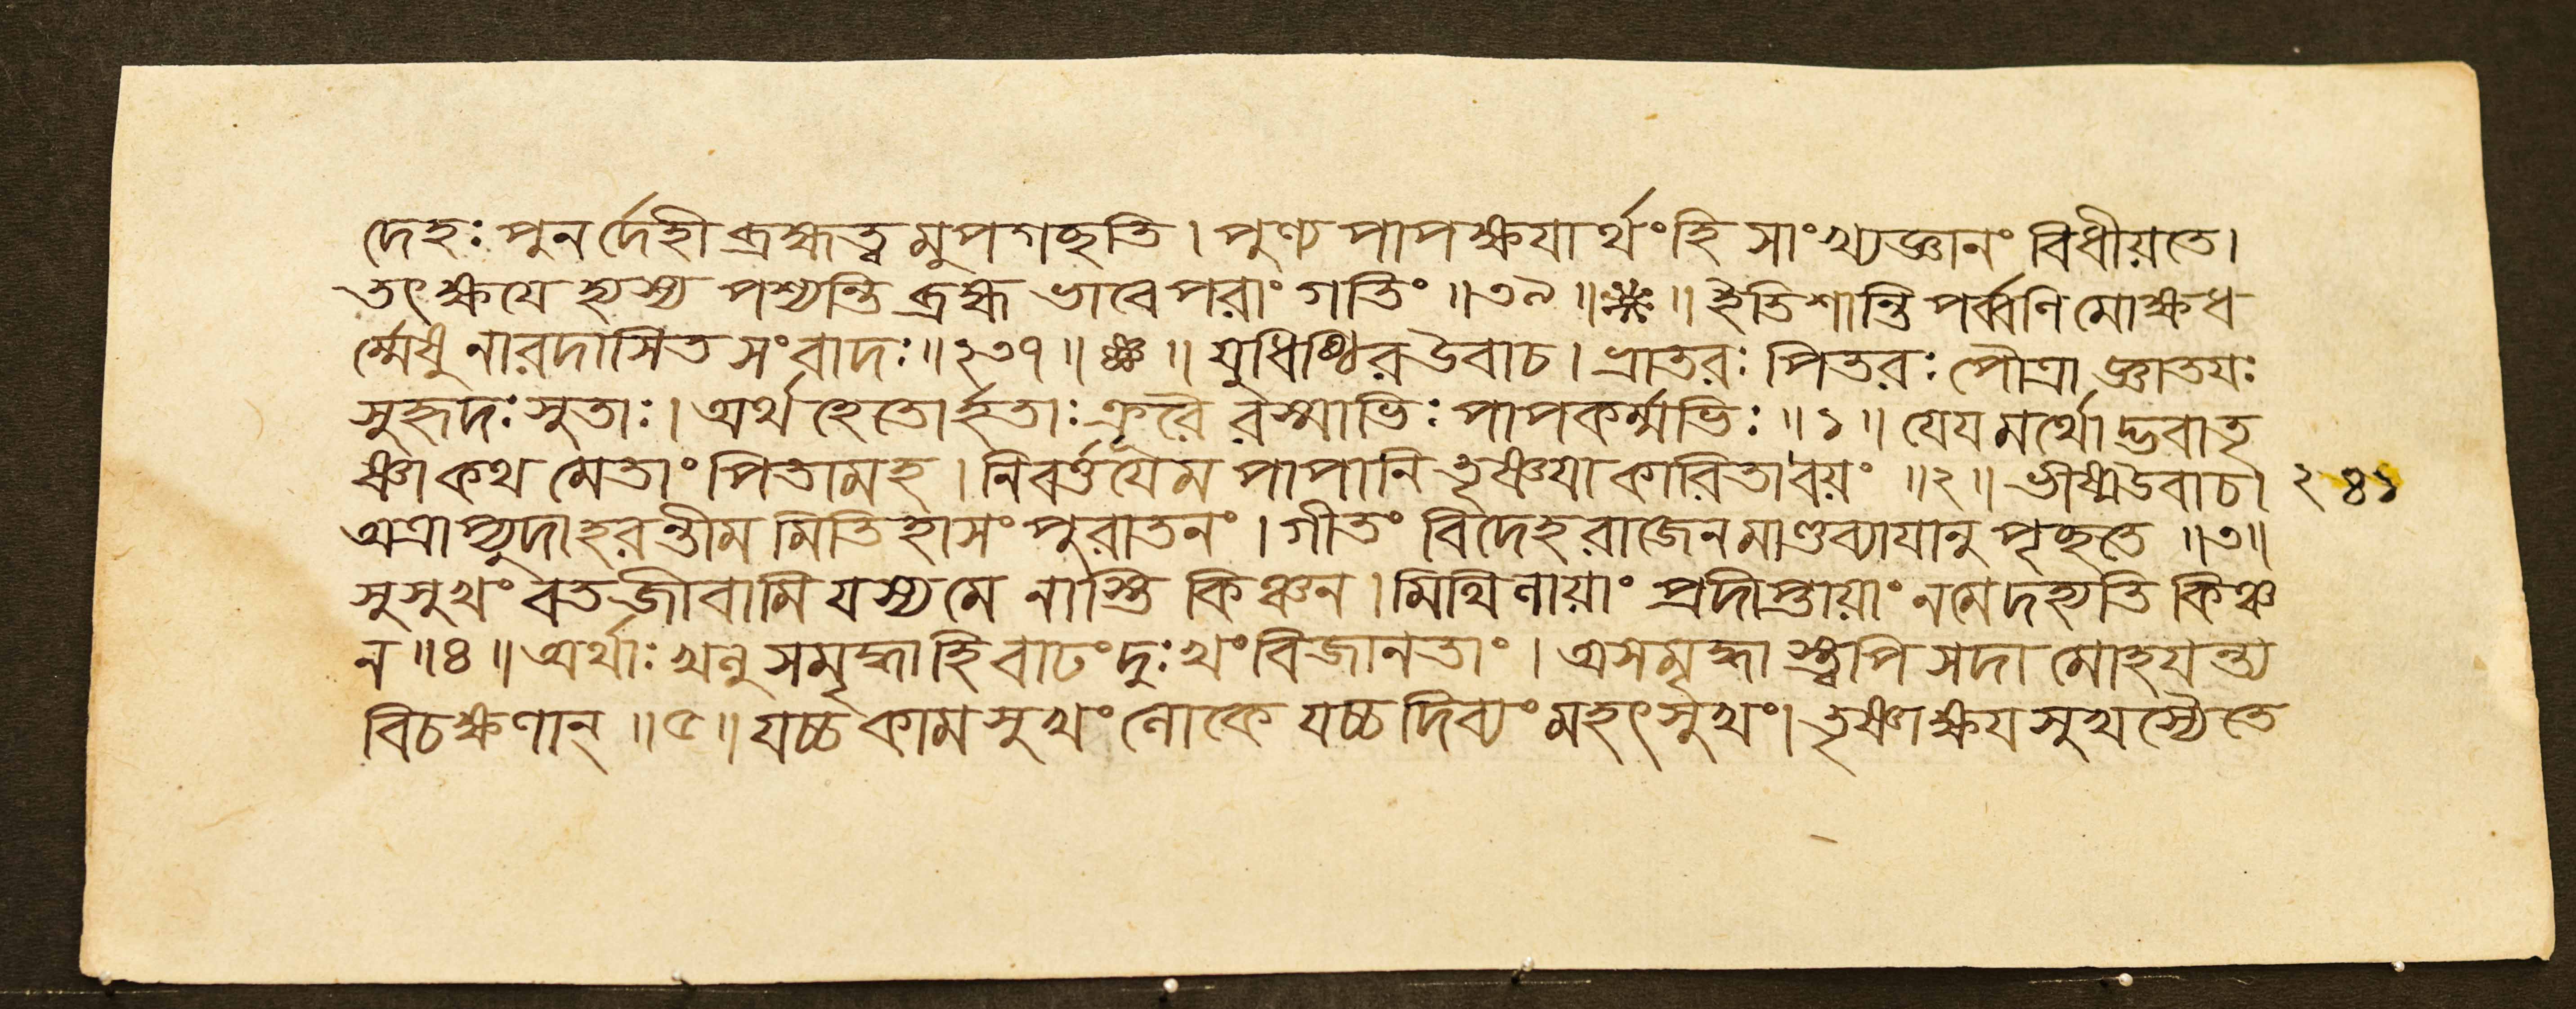 দেহঃ পুনর্দেহী ব্রহ্মত্বমুপগচ্ছতি । পুণ্যপাপক্ষযার্থং হি সাংখ্যজ্ঞানং বিধীয়তে ।
তৎক্ষযে হ্যস্য পশ্যন্তি ব্রহ্ম ভাবে পরাং গতিং ॥ ৩৯ ॥ ※ ॥ ইতি শান্তিপর্ব্বণি মোক্ষধ
র্ম্মেষু নারদাসিত সংবাদঃ ॥ ২৩৭ ॥ ॥ যুধিষ্ঠির উবাচ । ভ্রাতরঃ পিতরঃ পৌত্রা জ্ঞাতযঃ
সুহৃদঃ সুতাঃ । অর্থহেতোর্হতাঃ ক্রূরৈ রস্মাভিঃ পাপকর্ম্মভিঃ ॥ ১ ॥ যেযমর্থোদ্ভবা তৃ
ষ্ণা কথমেতাং পিতামহ । নিবর্ত্তযেম পাপানি তৃষ্ণযা কারিতা বয়ং ॥ ২ ॥ ভীষ্ম উবাচ । ২৪১
অত্রাপ্যুদাহরন্তীমমিতিহাসং পুরাতনং । গীতং বিদেহরাজেন মাণ্ডব্যাযানুপৃচ্ছতে ॥ ৩ ॥
সুসুখং বত জীবামি যস্য মে নাস্তি কিঞ্চন । মিথিলায়াং প্রদীপ্তায়াং ন মে দহ্যতি কিঞ্চ
ন ॥ ৪ ॥ অর্থাঃ খলু সমৃদ্ধা হি বাঢং দুঃখং বিজানতাং । অসমৃদ্ধাস্ত্বপি সদা মোহযন্ত্য
বিচক্ষণান্ ॥ ৫ ॥ যচ্চ কামসুখং লোকে যচ্চ দিব্যং মহৎসুখং । তৃষ্ণাক্ষযসুখস্যৈতে